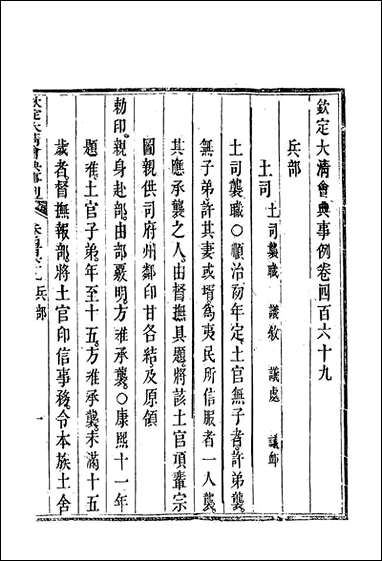 欽定大清會典事例卷四百六十九
兵部
土司 土司襲職 議敘 議處 議卹
土司襲職○順治初年定土官無子者許弟襲
無子弟許其妻或壻爲夷民所信服者一人襲
其應承襲之人由督撫具題將該土官頂輩宗
圖親供司府州鄰印甘各結及原領
勅印親身赴部由部覈明方准承襲○康熙十一年
題准土官子弟年至十五方准承襲未滿十五
歲者督撫報部將土官印信事務令本族土舍
欽定大清會典事例 兵部 一